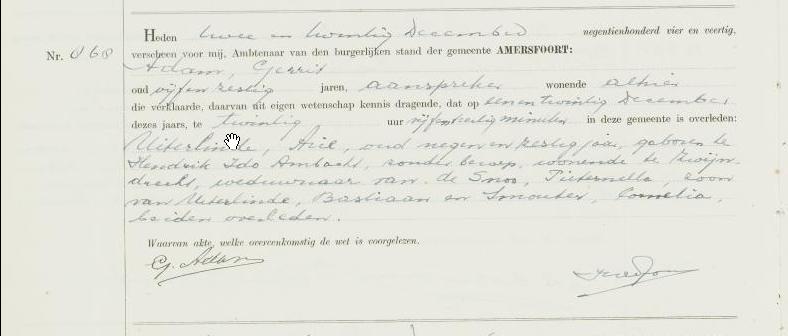 Heden twee en twintig December negentienhonderd vier en veertig,
Nr. 868 verscheen voor mij, Ambtenaar van den burgerlijken stand der gemeente AMERSFOORT:
Adam, Gerrit
oud vijfenzestig jaren, aanspreker wonende alhier
die verklaarde, daarvan uit eigen wetenschap kennis dragende, dat op eenentwintig December
dezes jaars, te twintig uur vijfenveertig minuten in deze gemeente is overleden:
Uiterlinde, Arie, oud negenenzestig jaar, geboren te
Hendrik Ido Ambacht, zonder beroep, wonende te Zwijn-
drecht, weduwnaar van de Snoo, Pieternella, zoon
van Uiterlinde, Bastiaan en Smouter, Cornelia,
beiden overleden.
Waarvan akte, welke overeenkomstig de wet is voorgelezen.
G. Adam